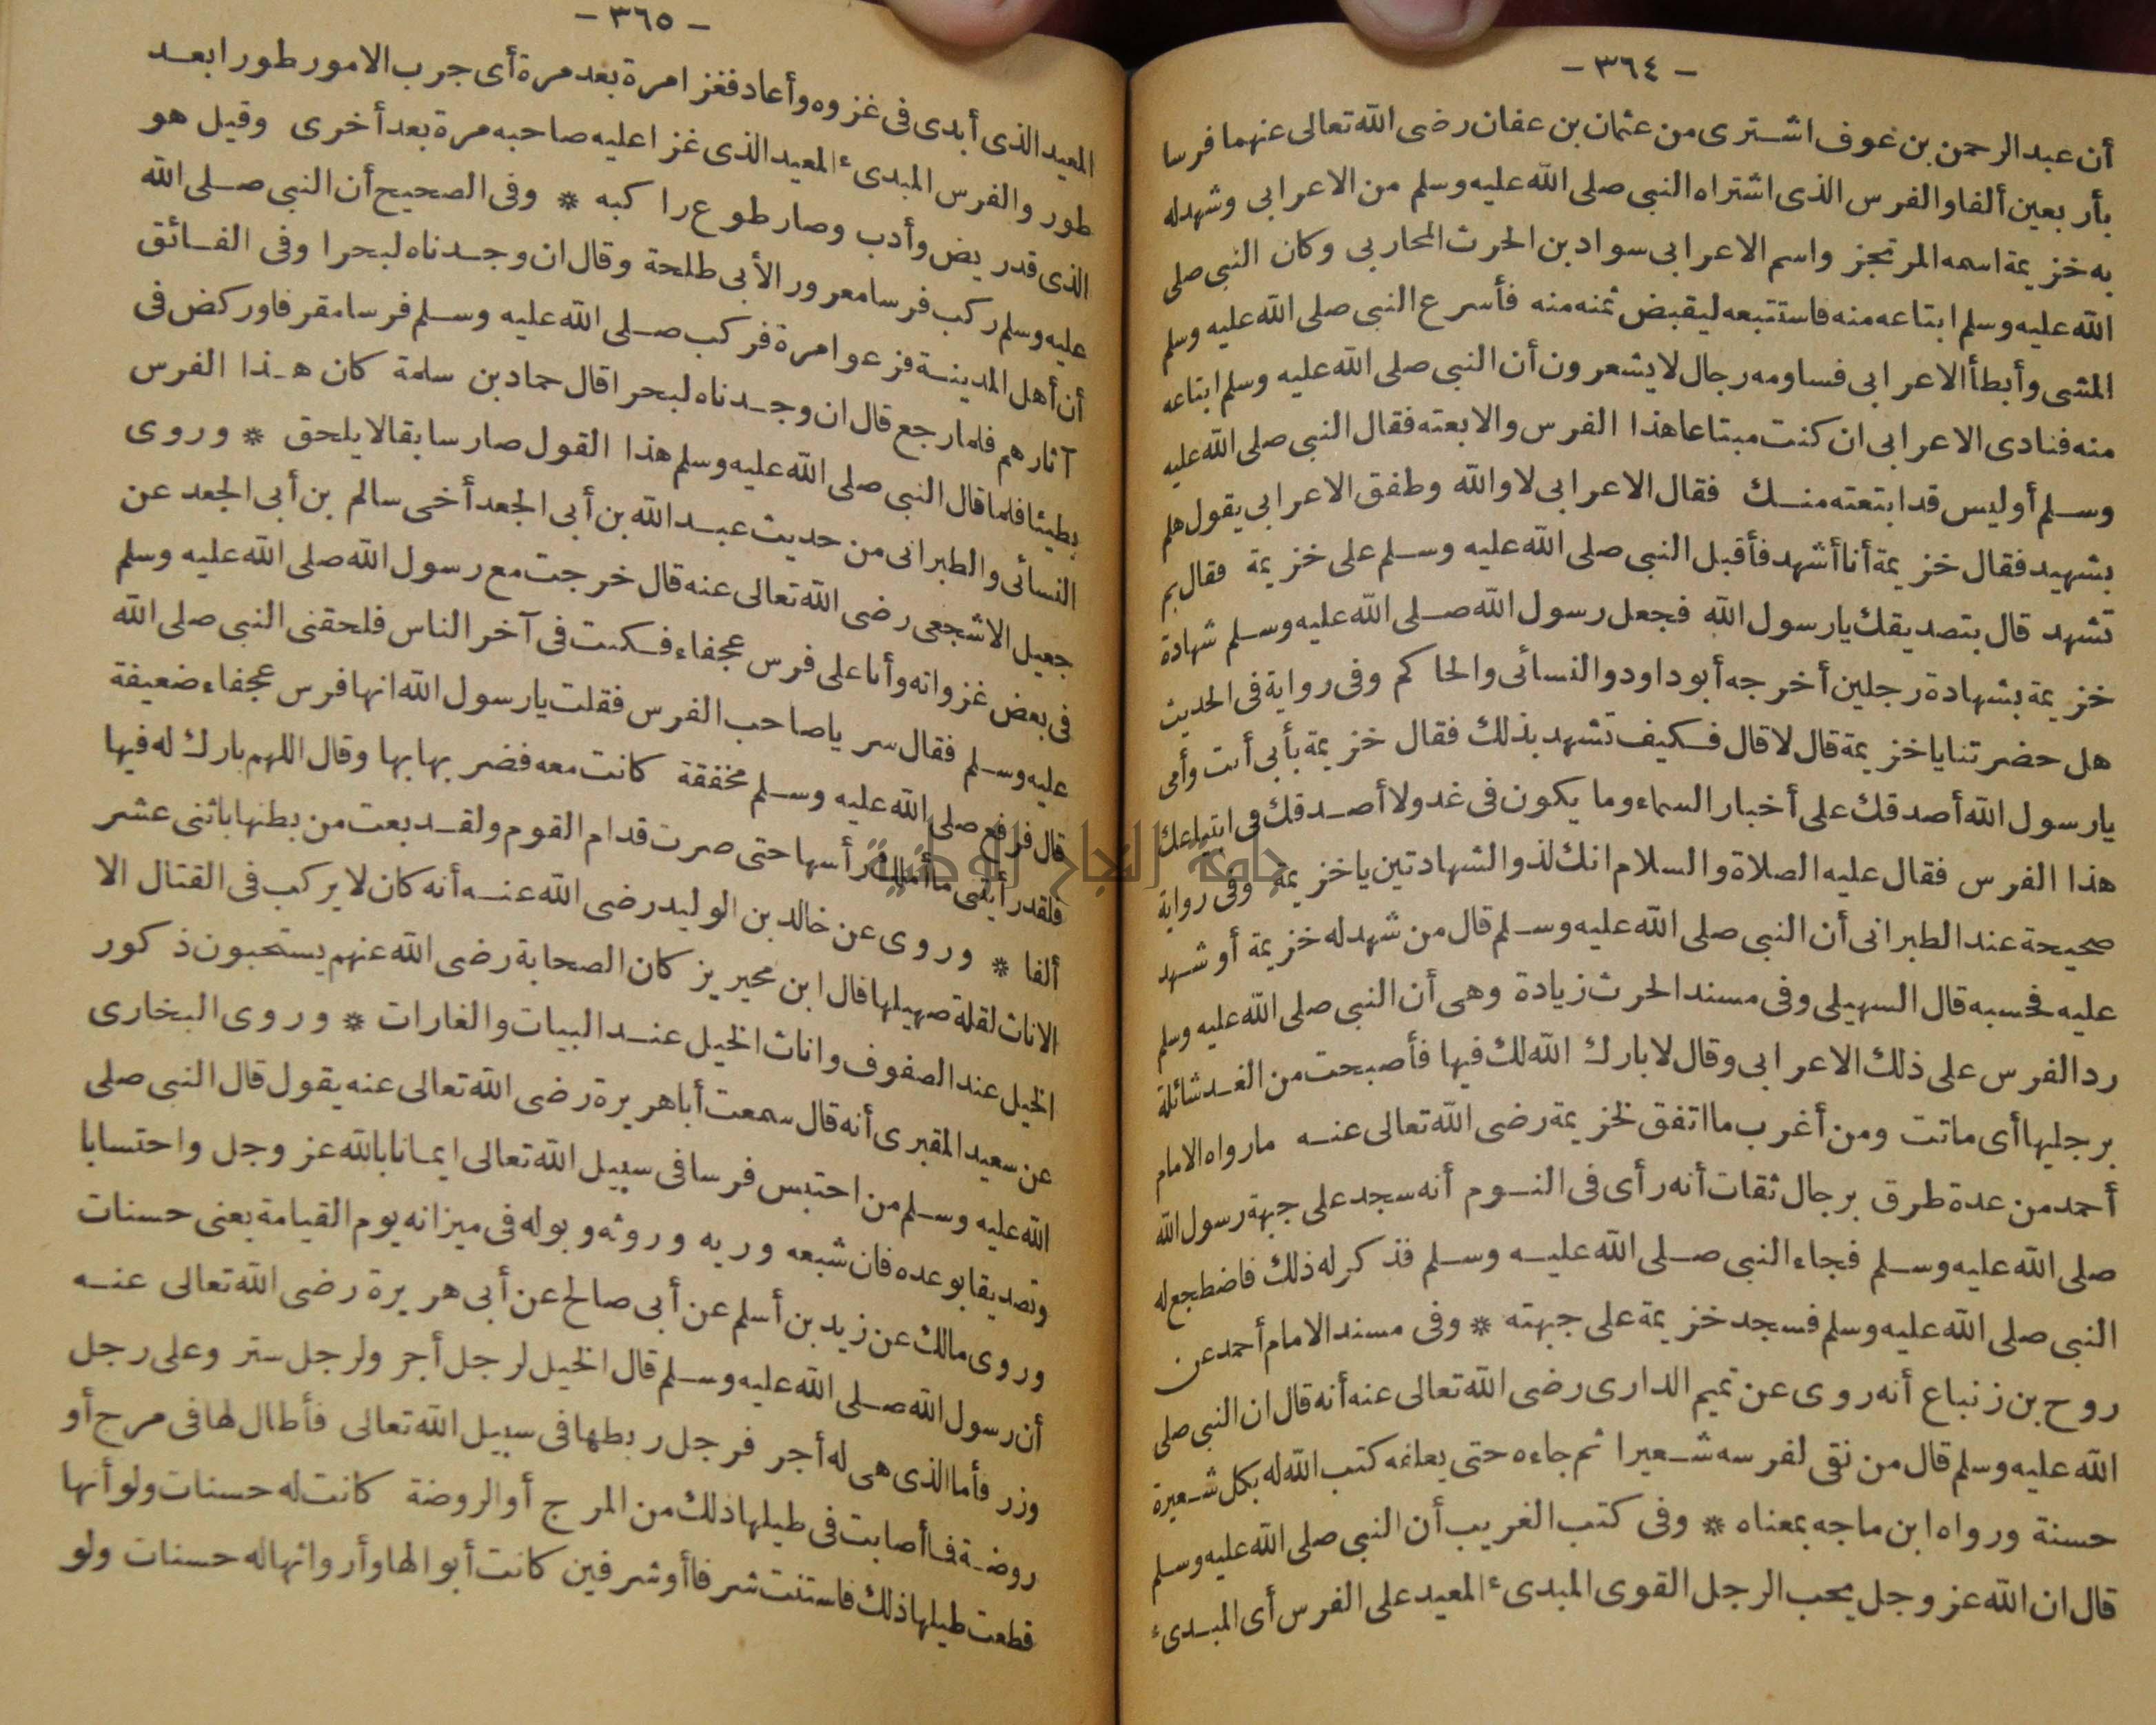 - ٣٦٤ -
أن عبد الرحمن بن عوف اشترى من عثمان بن عفان رضى الله تعالى عنهما فرسا
بأربعين ألفا والفرس الذى اشتراه النبى صلى الله عليه وسلم من الاعرابى وشهد له
به خزيمة اسمه المرتجز واسم الاعرابى سواد بن الحرث المحاربى وكان النبى صلى
الله عليه وسلم ابتاعه منه فاستتبعه ليقبض ثمنه منه فأسرع النبى صلى الله عليه وسلم
المشى وأبطأ الاعرابى فساومه رجال لا يشعرون أن النبى صلى الله عليه وسلم ابتاعه
منه فنادى الاعرابى ان كنت مبتاعا هذا الفرس والا بعته فقال النبى صلى الله عليه
وسلم أوليس قد ابتعته منك فقال الاعرابى لا والله وطفق الاعرابى يقول هلم
بشهيد فقال خزيمة أنا أشهد فأقبل النبى صلى الله عليه وسلم على خزيمة فقال بم
تشهد قال بتصديقك يا رسول الله فجعل رسول الله صلى الله عليه وسلم شهادة
خزيمة بشهادة رجلين أخرجه أبو داود والنسائى والحاكم وفى رواية فى الحديث
هل حضرتنا يا خزيمة قال لا قال فكيف تشهد بذلك فقال خزيمة بأبى أنت وأمى
يا رسول الله أصدقك على أخبار السماء وما يكون فى غد ولا أصدقك فى ابتياعك
هذا الفرس فقال عليه الصلاة والسلام انك لذو الشهادتين يا خزيمة وفى رواية
صحيحة عند الطبرانى أن النبى صلى الله عليه وسلم قال من شهد له خزيمة أو شهد
عليه فحسبه قال السهيلى وفى مسند الحرث زيادة وهى أن النبى صلى الله عليه وسلم
رد الفرس على ذلك الاعرابى وقال لا بارك الله لك فيها فأصبحت من الغد شائلة
برجليها أى ماتت ومن أغرب ما اتفق لخزيمة رضى الله تعالى عنه ما رواه الامام
أحمد من عدة طرق برجال ثقات أنه رأى فى النوم أنه سجد على جبهة رسول الله
صلى الله عليه وسلم فجاء النبى صلى الله عليه وسلم فذكر له ذلك فاضطجع له
النبى صلى الله عليه وسلم فسجد خزيمة على جبهته * وفى مسند الامام أحمد عن
روح بن زنباع أنه روى عن تميم الدارى رضى الله تعالى عنه أنه قال ان النبى صلى
الله عليه وسلم قال من نقى لفرسه شعيرا ثم جاءه حتى يعلفه كتب الله له بكل شعيرة
حسنة ورواه ابن ماجه بمعناه * وفى كتب الغريب أن النبى صلى الله عليه وسلم
قال ان الله عز وجل يحب الرجل القوى المبدىء المعيد على الفرس أى المبدىء
- ٣٦٥ -
المعيد الذى أبدى فى غزوه وأعاد فغزا مرة بعد مرة أى جرب الامور طورا بعد
طور والفرس المبدىء المعيد الذى غزا عليه صاحبه مرة بعد أخرى وقيل هو
الذى قد ريض وأدب وصار طوع راكبه * وفى الصحيح أن النبى صلى الله
عليه وسلم ركب فرسا معرور الأبى طلحة وقال ان وجدناه لبحرا وفى الفائق
أن أهل المدينة فزعوا مرة فركب صلى الله عليه وسلم فرسا مقرفا وركض فى
آثارهم فلما رجع قال ان وجدناه لبحرا قال حماد بن سلمة كان هذا الفرس
بطيئا فلما قال النبى صلى الله عليه وسلم هذا القول صار سابقا لا يلحق * وروى
النسائى والطبرانى من حديث عبد الله بن أبى الجعد أخى سالم بن أبى الجعد عن
جعيل الاشجعى رضى الله تعالى عنه قال خرجت مع رسول الله صلى الله عليه وسلم
فى بعض غزواته وأنا على فرس عجفاء فكنت فى آخر الناس فلحقنى النبى صلى الله
عليه وسلم فقال سر يا صاحب الفرس فقلت يا رسول الله انها فرس عجفاء ضعيفة
قال فرفع صلى الله عليه وسلم مخفقة كانت معه فضربها بها وقال اللهم بارك له فيها
فلقد رأيتنى ما أملك رأسها حتى صرت قدام القوم ولقد بعت من بطنها باثنى عشر
ألفا * وروى عن خالد بن الوليد رضى الله عنه أنه كان لا يركب فى القتال الا
الاناث لقلة صهيلها قال ابن محيريز كان الصحابة رضى الله عنهم يستحبون ذكور
الخيل عند الصفوف واناث الخيل عند البيات والغارات * وروى البخارى
عن سعيد المقبرى أنه قال سمعت أبا هريرة رضى الله تعالى عنه يقول قال النبى صلى
الله عليه وسلم من احتبس فرسا فى سبيل الله تعالى ايمانا بالله عز وجل واحتسابا
وتصديقا بوعده فان شبعه وريه وروثه وبوله فى ميزانه يوم القيامة يعنى حسنات
وروى مالك عن زيد بن أسلم عن أبى صالح عن أبى هريرة رضى الله تعالى عنه
أن رسول الله صلى الله عليه وسلم قال الخيل لرجل أجر ولرجل ستر وعلى رجل
وزر فأما الذى هى له أجر فرجل ربطها فى سبيل الله تعالى فأطال لها فى مرج أو
روضة فما أصابت فى طيلها ذلك من المرج أو الروضة كانت له حسنات ولو أنها
قطعت طيلها ذلك فاستنت شرفا أو شرفين كانت أبوالها وأرواثها له حسنات ولو
جامعة النجاح الوطنية